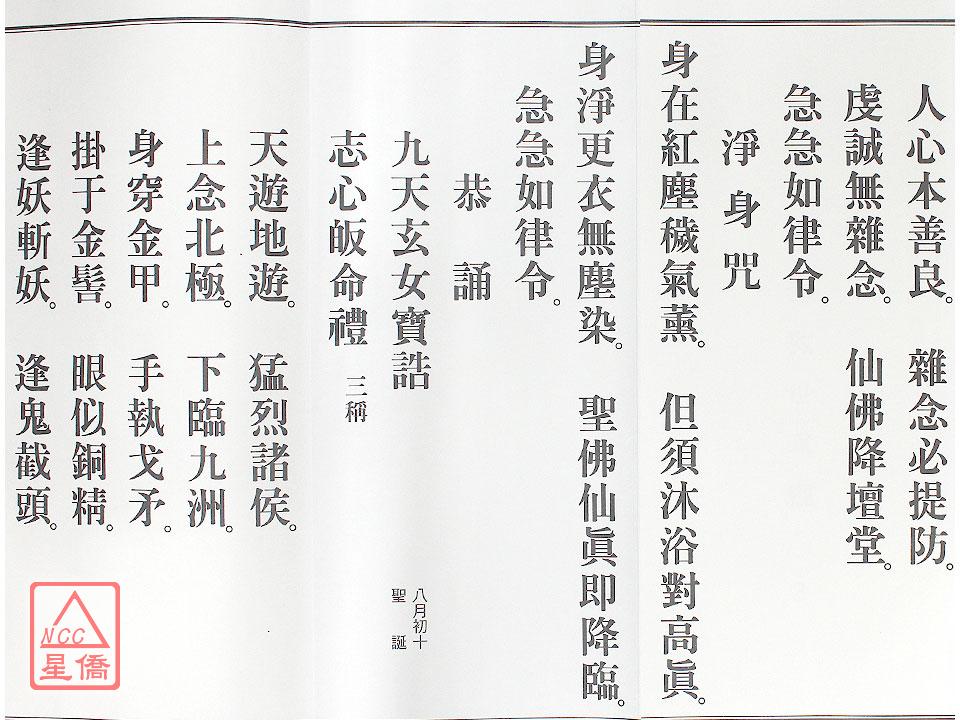 人心本善良。 雜念必提防。
虔誠無雜念。 仙佛降壇堂。
急急如律令。
淨身咒
身在紅塵穢氣薰。 但須沐浴對高眞。
身淨更衣無塵染。 聖佛仙眞即降臨。
急急如律令。
恭誦
九天玄女寶誥
八月初十
聖誕
志心皈命禮 三稱
天遊地遊。 猛烈諸侯。
上念北極。 下臨九洲。
身穿金甲。 手執戈矛。
掛于金髻。 眼似銅精。
逢妖斬妖。 逢鬼截頭。
NCC
星僑